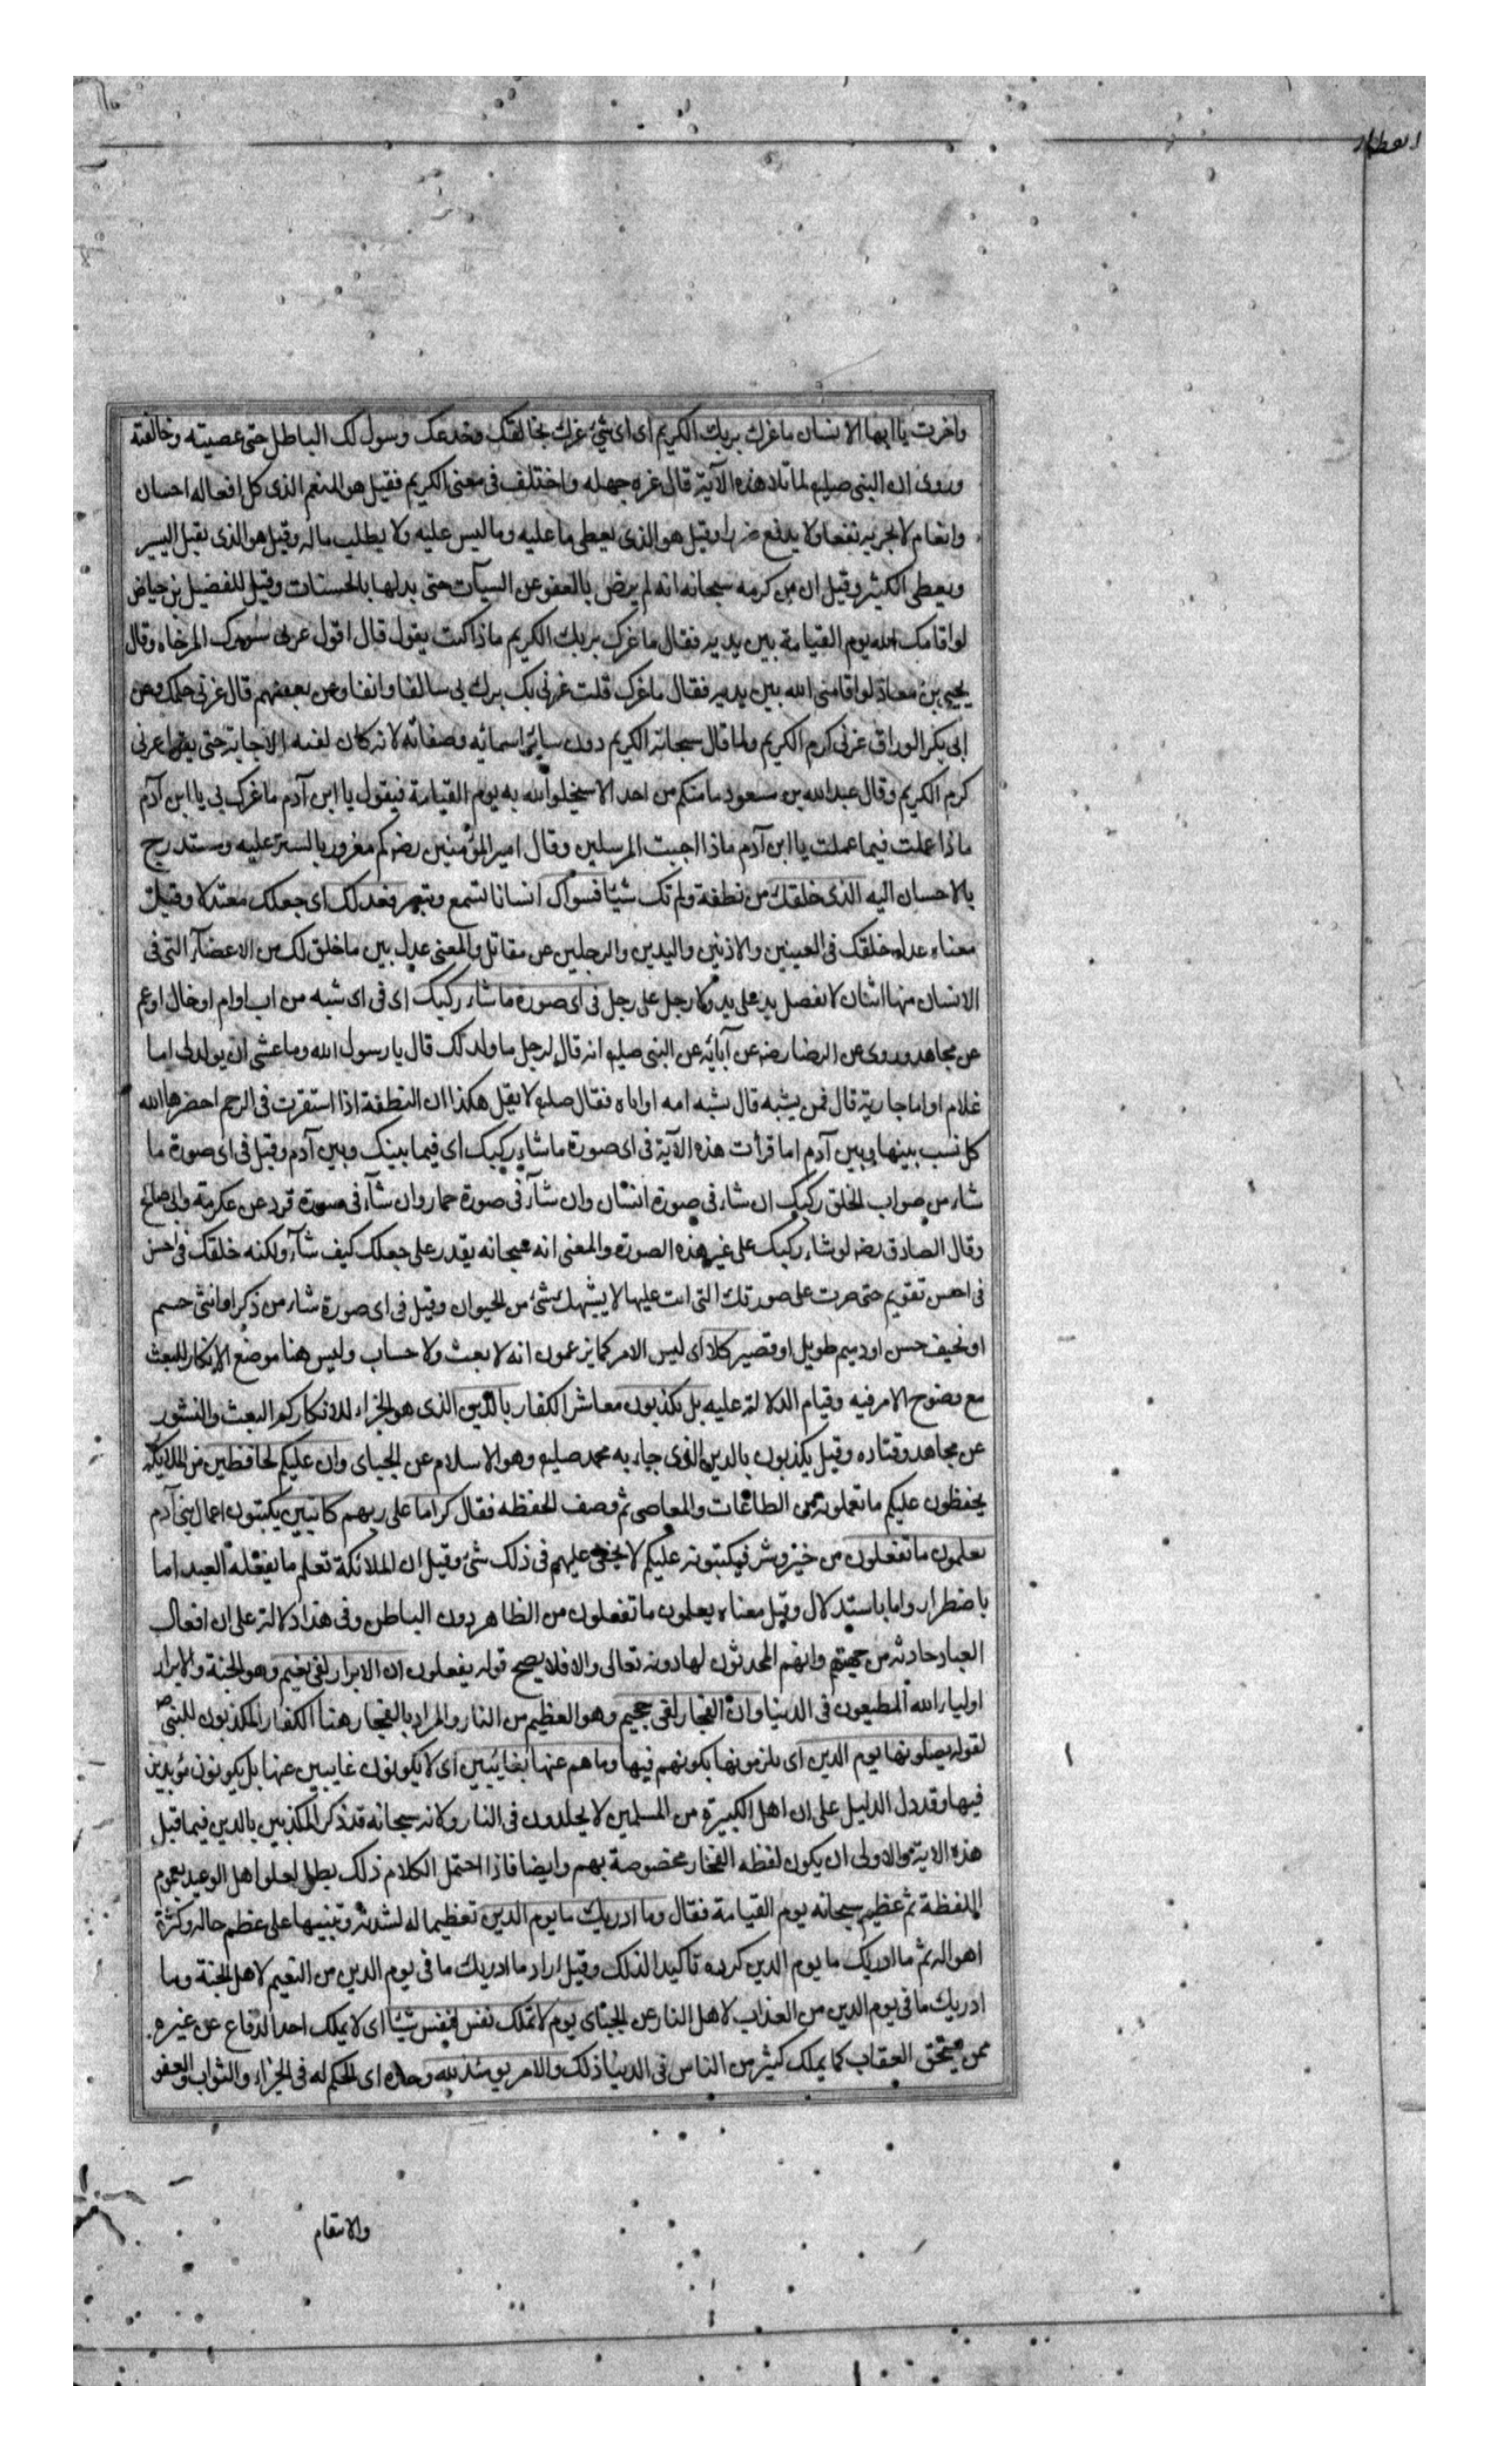 واخرت يا ايها الانسان ما غرك بربك الكريم اى اى شئ غرك بخالقك وخدعك وسول لك الباطل حتى عصيته وخالفته
وروى ان النبى صلعم لما تلا هذه الآية قال غره جهله واختلف فى معنى الكريم فقيل هو المنعم الذى كل افعاله احسان
وانعام لا يجر به نفعا ولا يدفع ضررا وقيل هو الذى يعطى ما عليه وما ليس عليه ولا يطلب ماله وقيل هو الذى يقبل اليسير
ويعطى الكثير وقيل ان من كرمه سبحانه انه لم يرض بالعفو عن السيآت حتى بدلها بالحسنات وقيل للفضيل بن عياض
لو اقامك الله يوم القيامة بين يديه فقال ما غرك بربك الكريم ماذا كنت يقول قال اقول غرنى ستورك المرخاه وقال
يحيى بن معاذ لو اقامنى الله بين يديه فقال ما غرك قلت غرنى بك برك بى سالفا وانفا وعن بعضهم قال غرنى حلمك وعن
ابى بكر الوراق غرنى كرم الكريم وانما قال سبحانه الكريم دون سائر اسمائه وصفاته لانه كان لقنه الاجابة حتى يقول غرنى
كرم الكريم وقال عبد الله بن مسعود ما منكم من احد الا سيخلو الله به يوم القيامة فيقول يا ابن آدم ما غرك بى يا ابن آدم
ماذا عملت فيما عملت يا ابن آدم ماذا اجبت المرسلين وقال امير المؤمنين رضه كم مغرور بالستر عليه ومستدرج
بالاحسان اليه الذى خلقك من نطفة ولم تك شيئا فسواك انسانا تسمع وتبصر فعدلك اى جعلك معتدلا وقيل
معناه عدل خلقك فى العينين والاذنين واليدين والرجلين عن مقاتل والمعنى عدل بين ما خلق لك من الاعضآء التى فى
الانسان منها اثنان لا تفضل يد على يد ولا رجل على رجل فى اى صورة ما شاء ركبك اى فى اى شبه من اب او ام او خال او عم
عن مجاهد وروى عن الرضا رضه عن آبائه عن النبى صلعم انه قال لرجل ما ولد لك قال يا رسول الله وما عسى ان يولد لى اما
غلام او اما جارية قال فمن يشبه قال يشبه امه او اباه فقال صلعم لا تقل هكذا ان النطفة اذا استقرت فى الرحم احضرها الله
كل نسب بينها وبين آدم اما قرأت هذه الآية فى اى صورة ما شاء ركبك اى فيما بينك وبين آدم وقيل فى اى صورة ما
شاء من صواب الخلق ركبك ان شاء فى صورة انسان وان شآء فى صورة حمار وان شآء فى صورة قرد عن عكرمة وابى صالح
وقال الصادق رضه لو شاء ركبك على غير هذه الصورة والمعنى انه سبحانه يقدر على جعلك كيف شآء ولكنه خلقك فى احسن
فى احسن تقويم حتى صرت على صورتك التى انت عليها لا يشبهك شئ من الحيوان وقيل فى اى صورة شاء من ذكر او انثى جسم
او نحيف حسن او دميم طويل او قصير كلا اى ليس الامر كما يزعمون انه لا بعث ولا حساب وليس هنا موضع الانكار للبعث
مع وضوح الامر فيه وقيام الدلالة عليه بل تكذبون معاشر الكفار بالدين الذى هو الجزاء لانكاركم البعث والنشور
عن مجاهد وقتاده وقيل يكذبون بالدين الذى جاء به محمد صلعم وهو الاسلام عن الجباى وان عليكم لحافظين من الملائكة
يحفظون عليكم ما تعملونه من الطاعات والمعاصى ثم وصف الحفظه فقال كراما على ربهم كاتبين يكتبون اعمال بنى آدم
يعلمون ما تفعلون من خير وشر فيكتبونه عليكم لا يخفى عليهم فى ذلك شئ وقيل ان الملائكة تعلم ما يفعله العبد اما
باضطرار واما باستدلال وقيل معناه يعلمون ما تفعلون من الظاهر دون الباطن وفى هذا دلالة على ان افعال
العباد حادثه من جهتهم وانهم المحدثون لها دونه تعالى والا فلا يصح قوله يفعلون ان الابرار لفى نعيم وهو الجنة والابرار
اولياء الله المطيعون فى الدنيا وان الفجار لفى جحيم وهو العظيم من النار والمراد بالفجار هنا الكفار المكذبون للنبى ص
لقوله يصلونها يوم الدين اى يلزمونها بكونهم فيها وما هم عنها بغائبين اى لا يكونون غايبين عنها بل يكونون مؤبدين
فيها وقد دل الدليل على ان اهل الكبيرة من المسلمين لا يخلدون فى النار ولانه سبحانه قد ذكر المكذبين بالدين فيما قبل
هذه الاية والاولى ان يكون لفظه الفجار مخصوصة بهم وايضا فاذا احتمل الكلام ذلك بطل تعلق اهل الوعيد بعموم
اللفظة ثم عظم سبحانه يوم القيامة فقال وما ادريك ما يوم الدين تعظيما له لشدته وتنبيها على عظم حاله وكثرة
اهواله ثم ما ادريك ما يوم الدين كرره تاكيدا لذلك وقيل اراد ما ادريك ما فى يوم الدين من النعيم لاهل الجنة وما
ادريك ما فى يوم الدين من العذاب لاهل النار عن الجباى يوم لا تملك نفس لنفس شيئا اى لا يملك احد الدفاع عن غيره
ممن يستحق العقاب كما يملك كثير من الناس فى الدنيا ذلك والامر يومئذ لله وحده اى الحكم له فى الجزاء والثواب والعفو
والانتقام